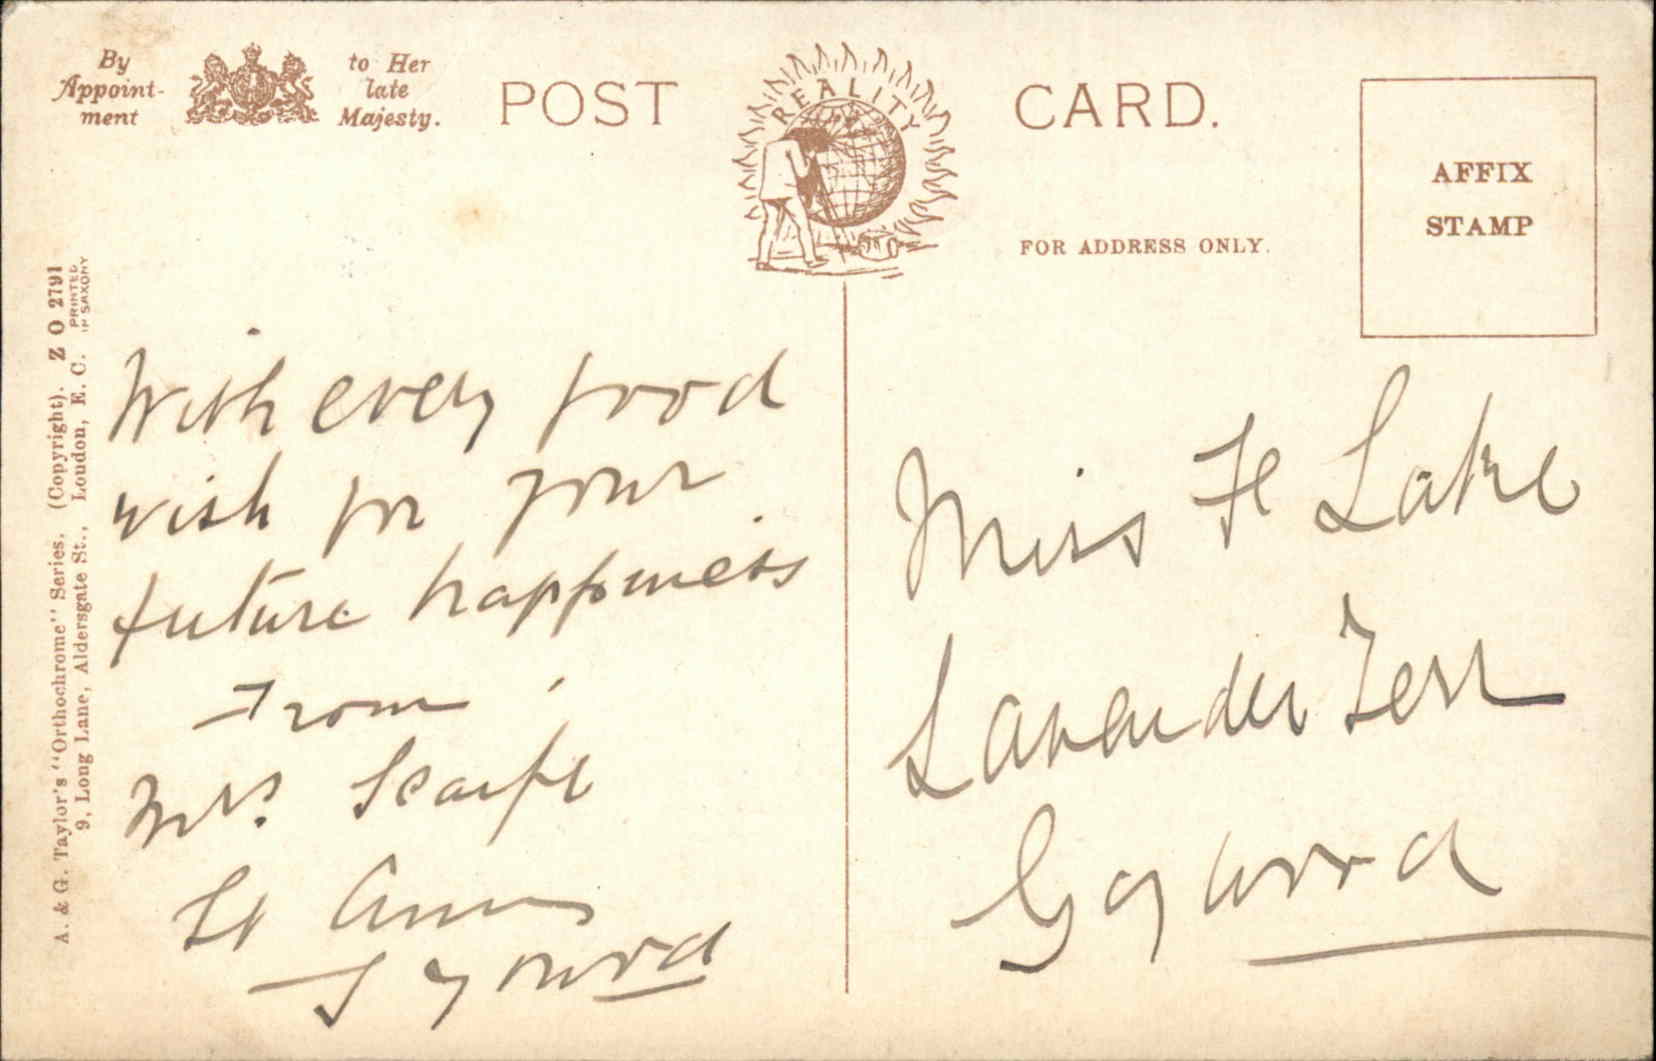 By Appoint- ment
to Her late Majesty.
POST CARD.
REALITY
FOR ADDRESS ONLY.
AFFIX
STAMP
A. & G. Taylor's "Orthochrome" Series, (Copyright). Z O 2791
9, Long Lane, Aldersgate St., London, E. C.
PRINTED
IN SAXONY
With every good
wish for your
future happiness
From
Mrs. Scarfe
St Anns
Gaywood
Miss Fe Lake
Lavender Terr
Gaywood